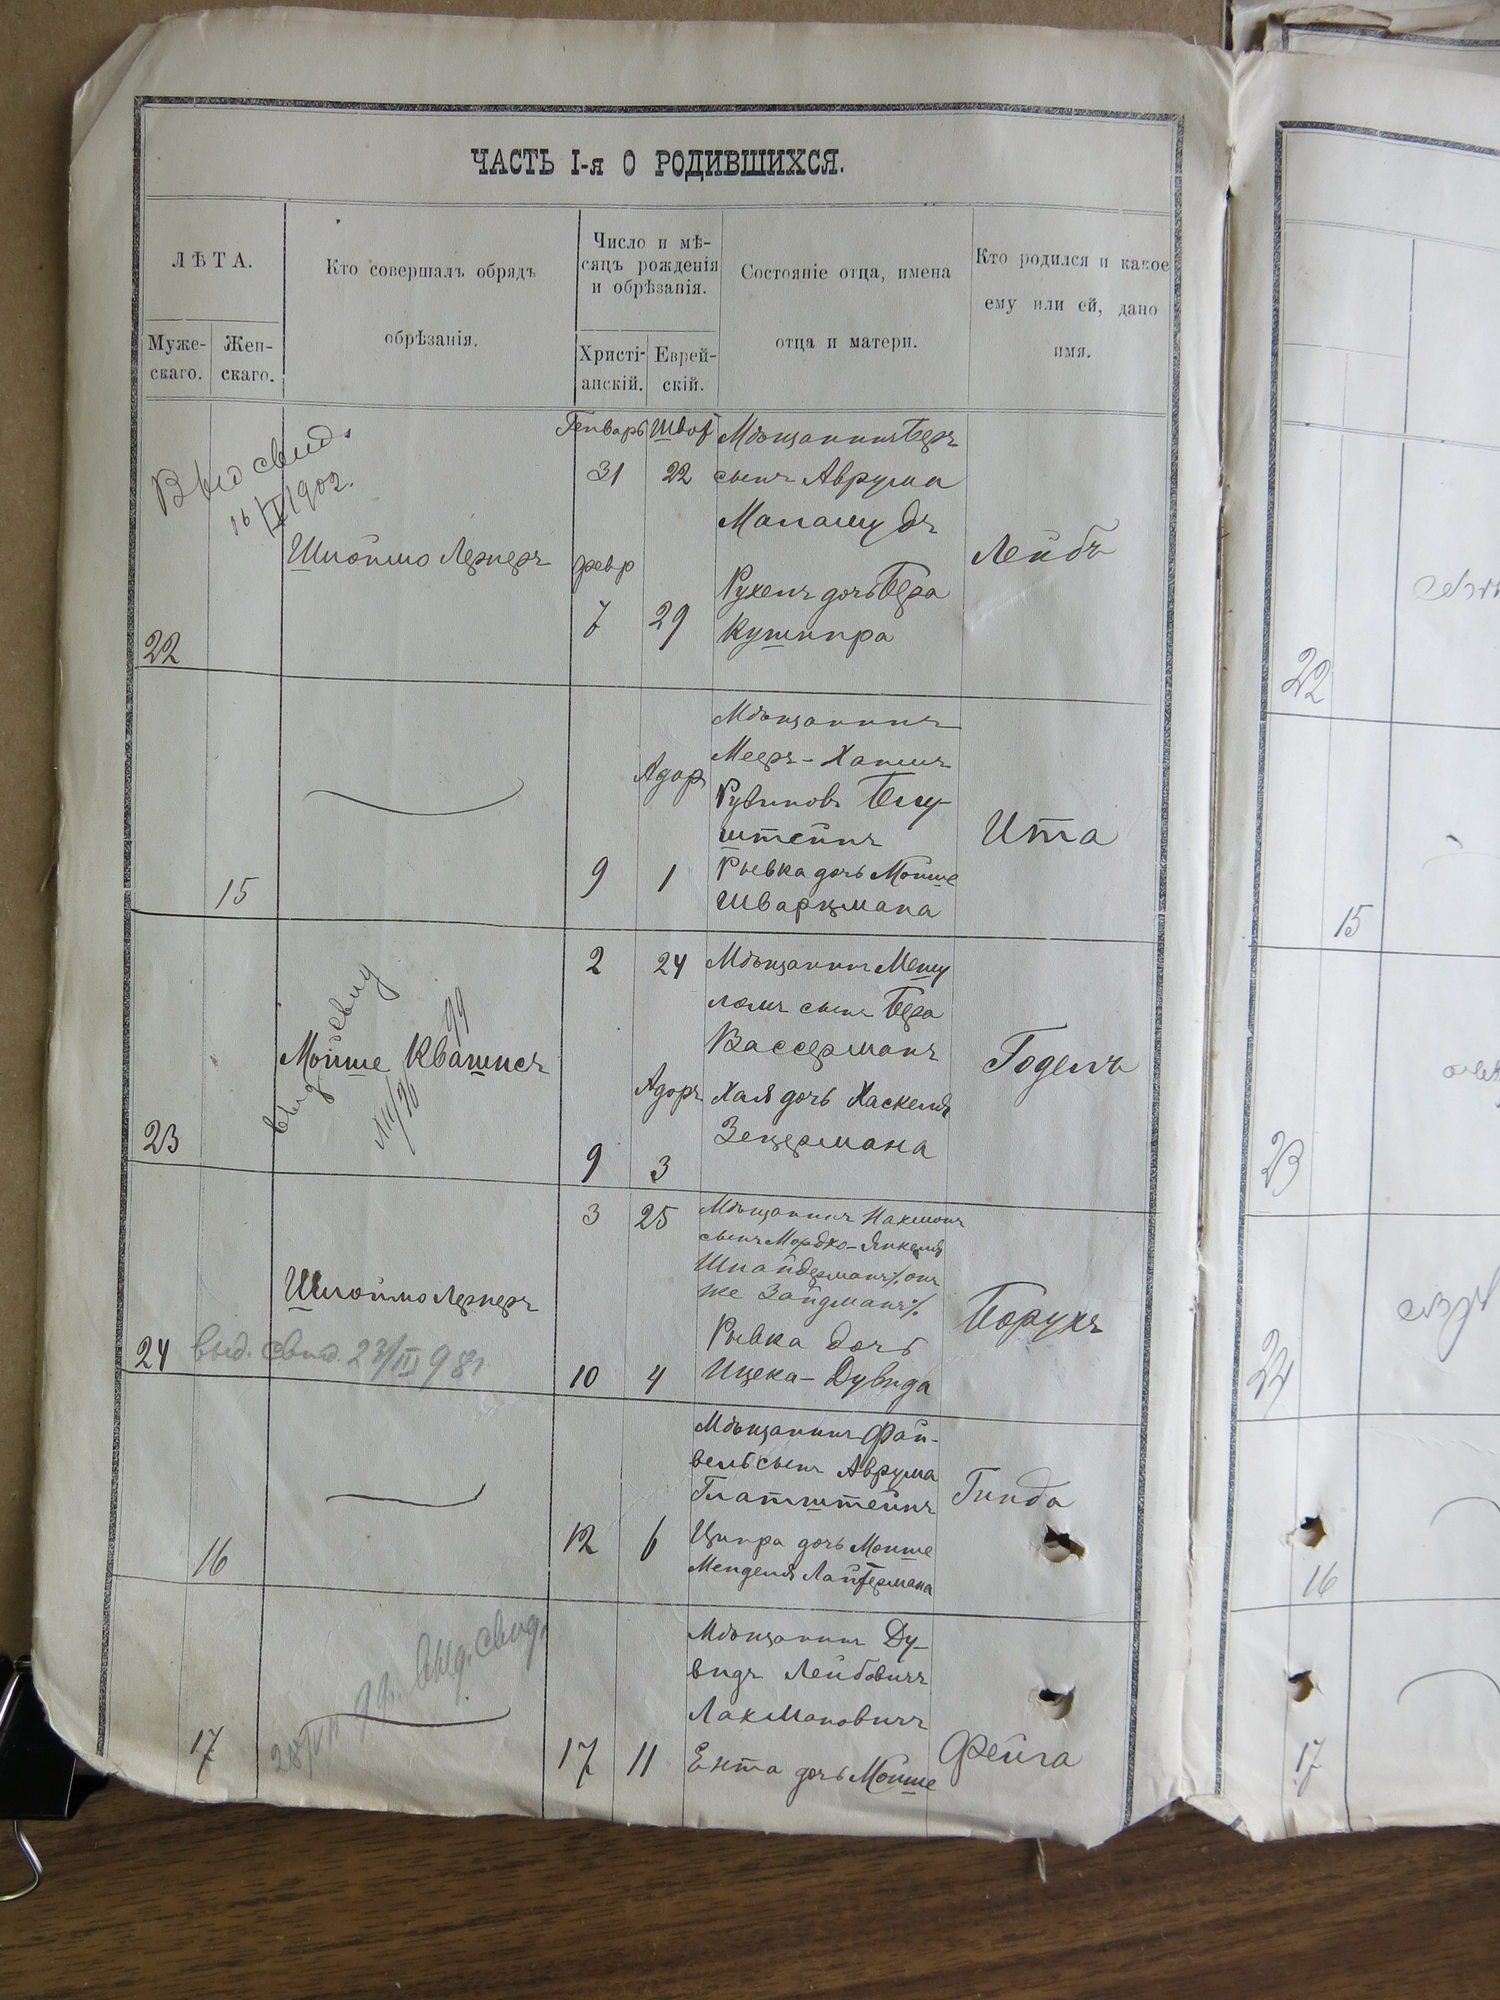 ЧАСТЬ I-я О РОДИВШИХСЯ.
ЛѢТА.
Муже-
скаго.
Жен-
скаго.
Кто совершалъ обрядъ
обрѣзанія.
Число и мѣ-
сяцъ рожденія
и обрѣзанія.
Христі-
анскій.
Еврей-
скій.
Состояніе отца, имена
отца и матери.
Кто родился и какое
ему или ей, дано
имя.
22
Выд свид.
16/II 1902.
Шлоймо Лернеръ
Генварь
31
февр
7
Швот
22
29
Мѣщанинъ Беръ
сынъ Аврума
Рухель дочь Бера
Кушнира
Лейбъ
15
9
Адор
1
Мѣщанинъ
Мееръ-Хаимъ
Рувиновъ Блу-
штейнъ
Рывка дочь Мойше
Шварцмана
Ита
23
Мойше Квашисъ
выд свид
99
2
9
24
Адоръ
3
Мѣщанинъ Мешу
ломъ сынъ Бера
Вассерманъ
Хая дочь Хаскеля
Зецермана
Годель
24
Шлоймо Лернеръ
выд. свид. 23/III 98
3
10
25
4
Мѣщанинъ Нахманъ
сынъ Мордко-Янкеля
Шнайдерманъ % онъ
же Зайдманъ %
Рывка дочь
Ицека-Дувида
Борухъ
16
12
6
Мѣщанинъ Фай-
вель сынъ Аврума
Глатштейнъ
Ципра дочь Мойше
Менделя Лайтермана
Гинда
17
выд. свид.
17
11
Мѣщанинъ Ду-
видъ Лейбовичъ
Лахмановичъ
Ента дочь Мойше
Фейга
22
15
23
24
16
17